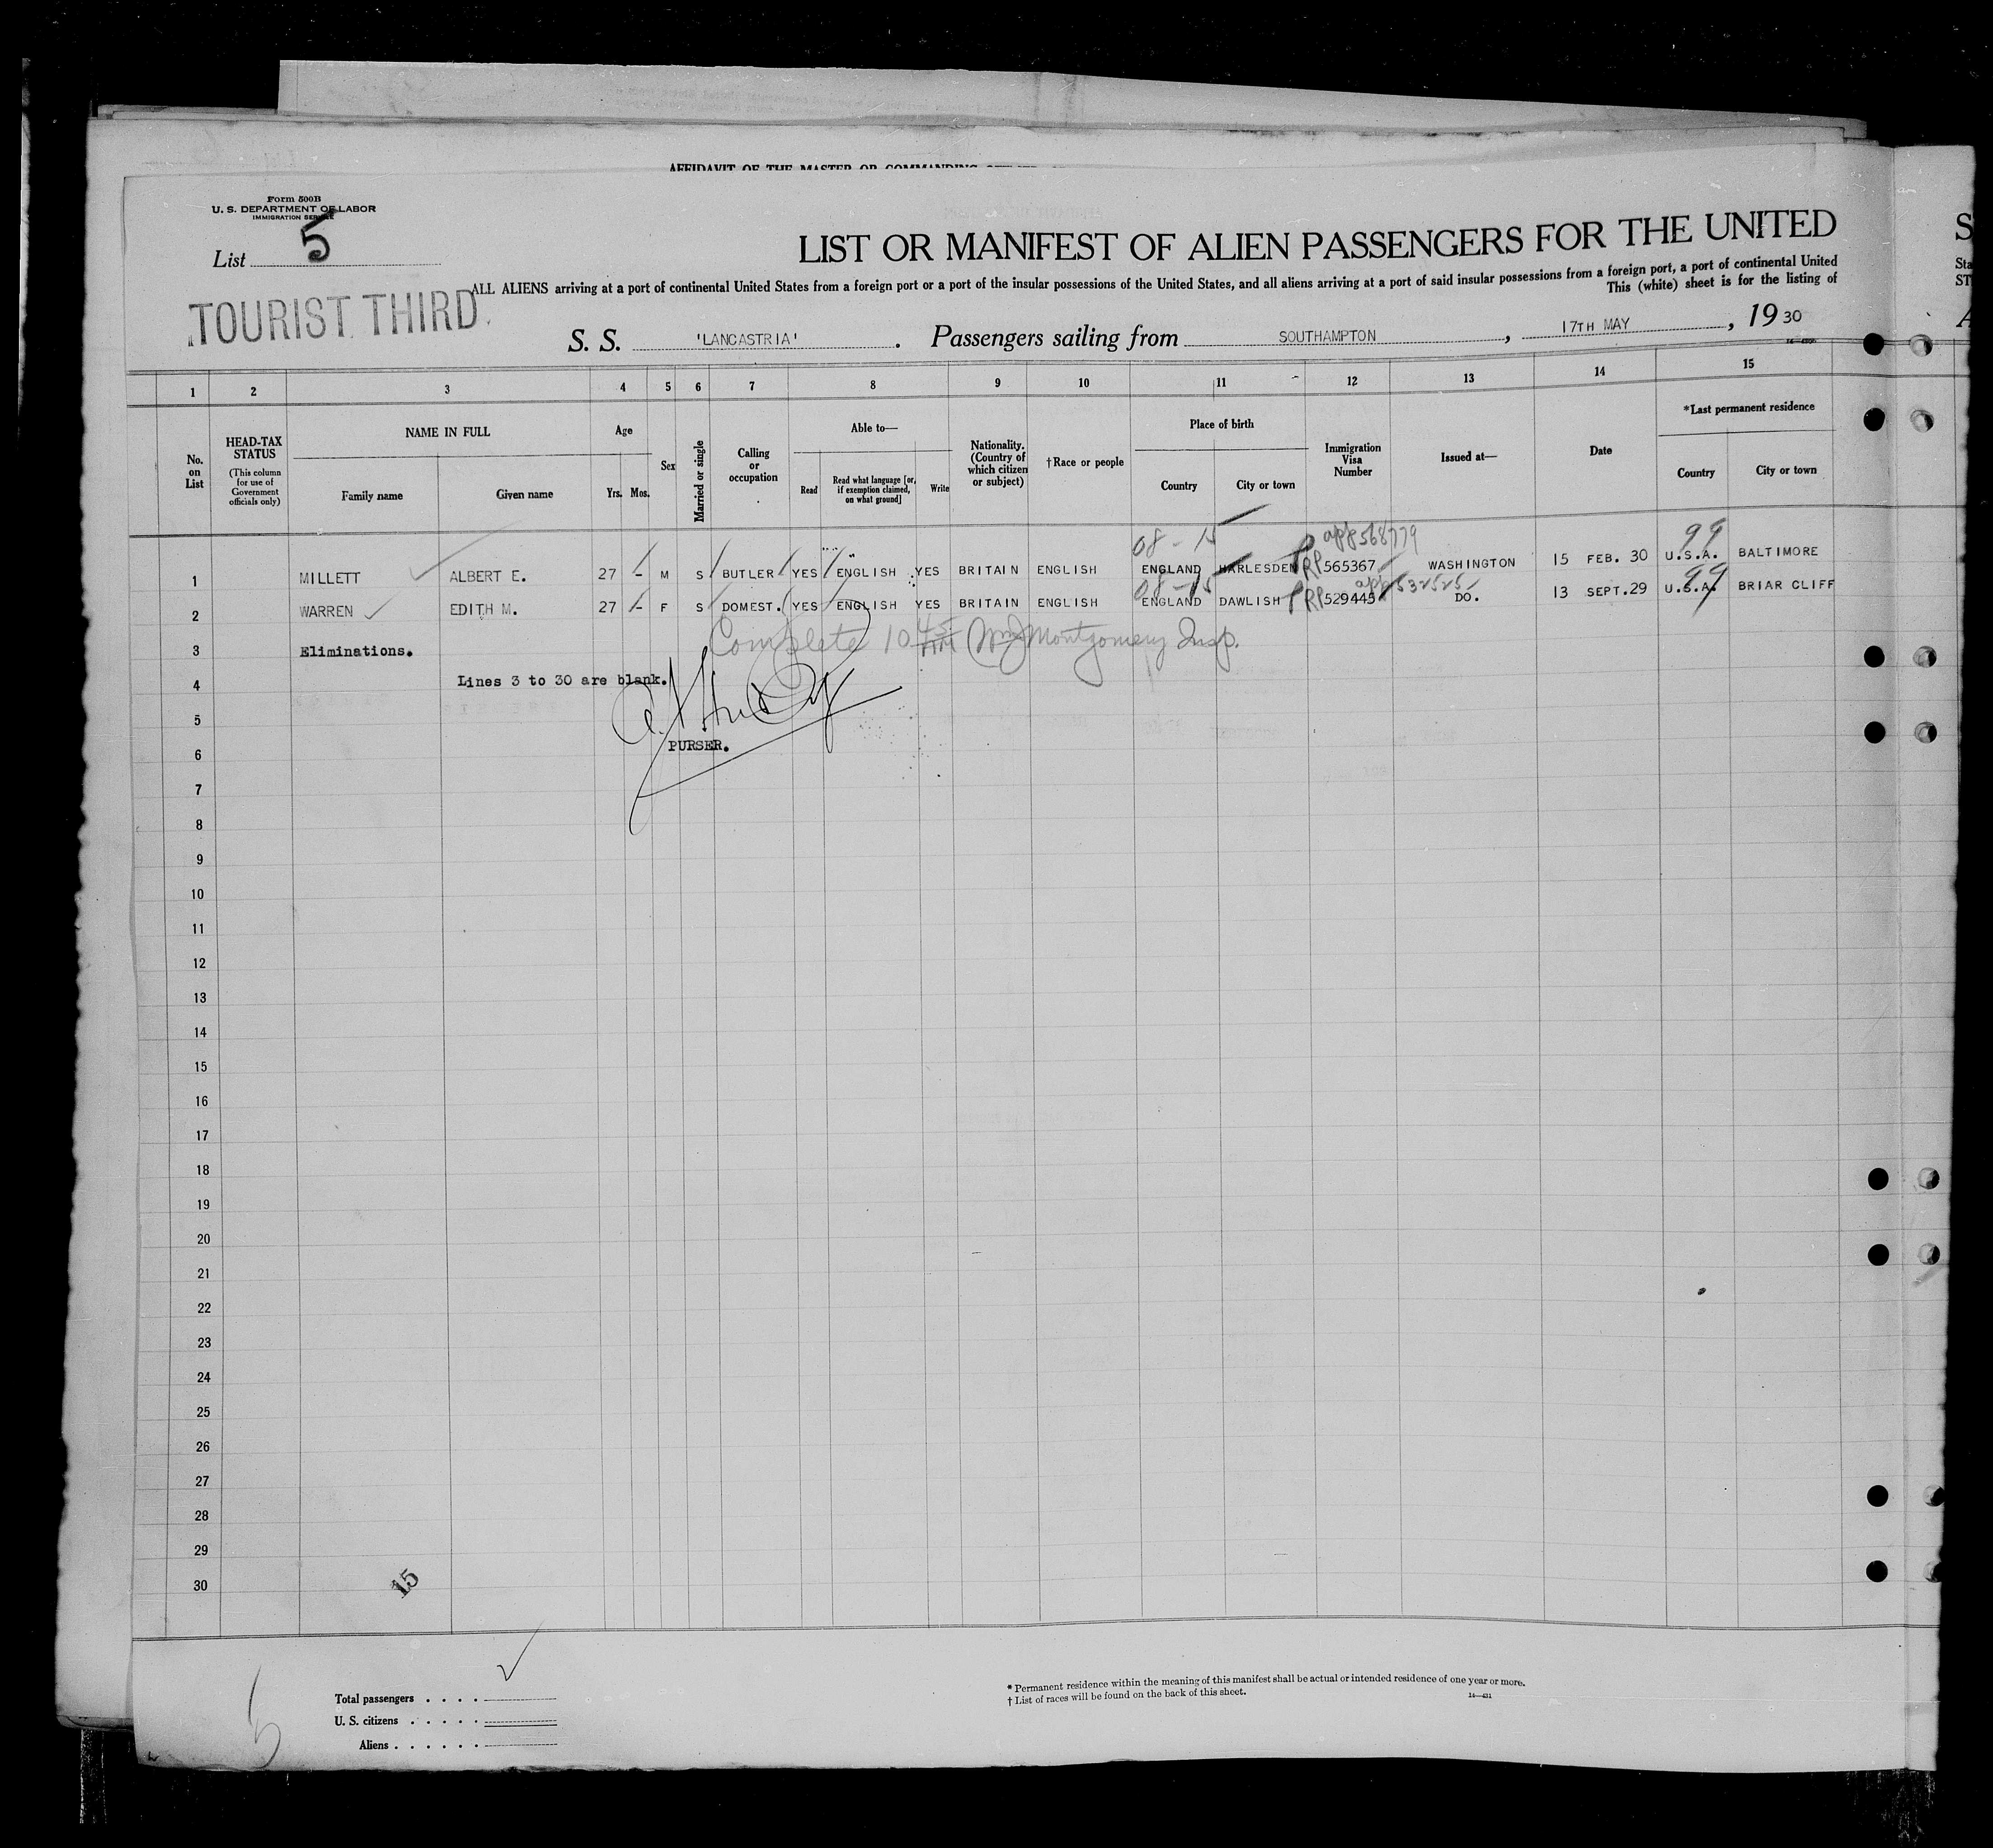 AFFIDAVIT OF THE MASTER OR COMMANDING
Form 500B
U. S. DEPARTMENT OF LABOR
IMMIGRATION SERVICE
List 5
LIST OR MANIFEST OF ALIEN PASSENGERS FOR THE UNITED
ALL ALIENS arriving at a port of continental United States from a foreign port or a port of the insular possessions of the United States, and all aliens arriving at a port of said insular possessions from a foreign port, a port of continental United
This (white) sheet is for the listing of
TOURIST THIRD.
S. S. 'LANCASTRIA' . Passengers sailing from SOUTHAMPTON , 17TH MAY , 19 30
1 2 3 4 5 6 7 8 9 10 11 12 13 14 15
No. on List
HEAD-TAX STATUS (This column for use of Government officials only)
NAME IN FULL
Family name Given name
Age
Yrs. Mos.
Sex
Married or single
Calling or occupation
Able to—
Read
Read what language [or, if exemption claimed, on what ground]
Write
Nationality. (Country of which citizen or subject)
†Race or people
Place of birth
Country City or town
Immigration Visa Number
Issued at—
Date
*Last permanent residence
Country City or town
08 - 15 app 568779 99
1 MILLETT ALBERT E. 27 - M S BUTLER YES ENGLISH YES BRITAIN ENGLISH ENGLAND HARLESDEN RP 565367 WASHINGTON 15 FEB. 30 U.S.A. BALTIMORE
08 - 15 app 532525 99
2 WARREN EDITH M. 27 - F S DOMEST. YES ENGLISH YES BRITAIN ENGLISH ENGLAND DAWLISH RP 529445 DO. 13 SEPT.29 U.S.A. BRIAR CLIFF
Complete 10 45 AM Montgomery Insp.
3 Eliminations.
4 Lines 3 to 30 are blank.
5
6 PURSER.
7
8
9
10
11
12
13
14
15
16
17
18
19
20
21
22
23
24
25
26
27
28
29
30
15
5
Total passengers . . . .
U. S. citizens . . . . .
Aliens . . . . . .
* Permanent residence within the meaning of this manifest shall be actual or intended residence of one year or more.
† List of races will be found on the back of this sheet.
14—431